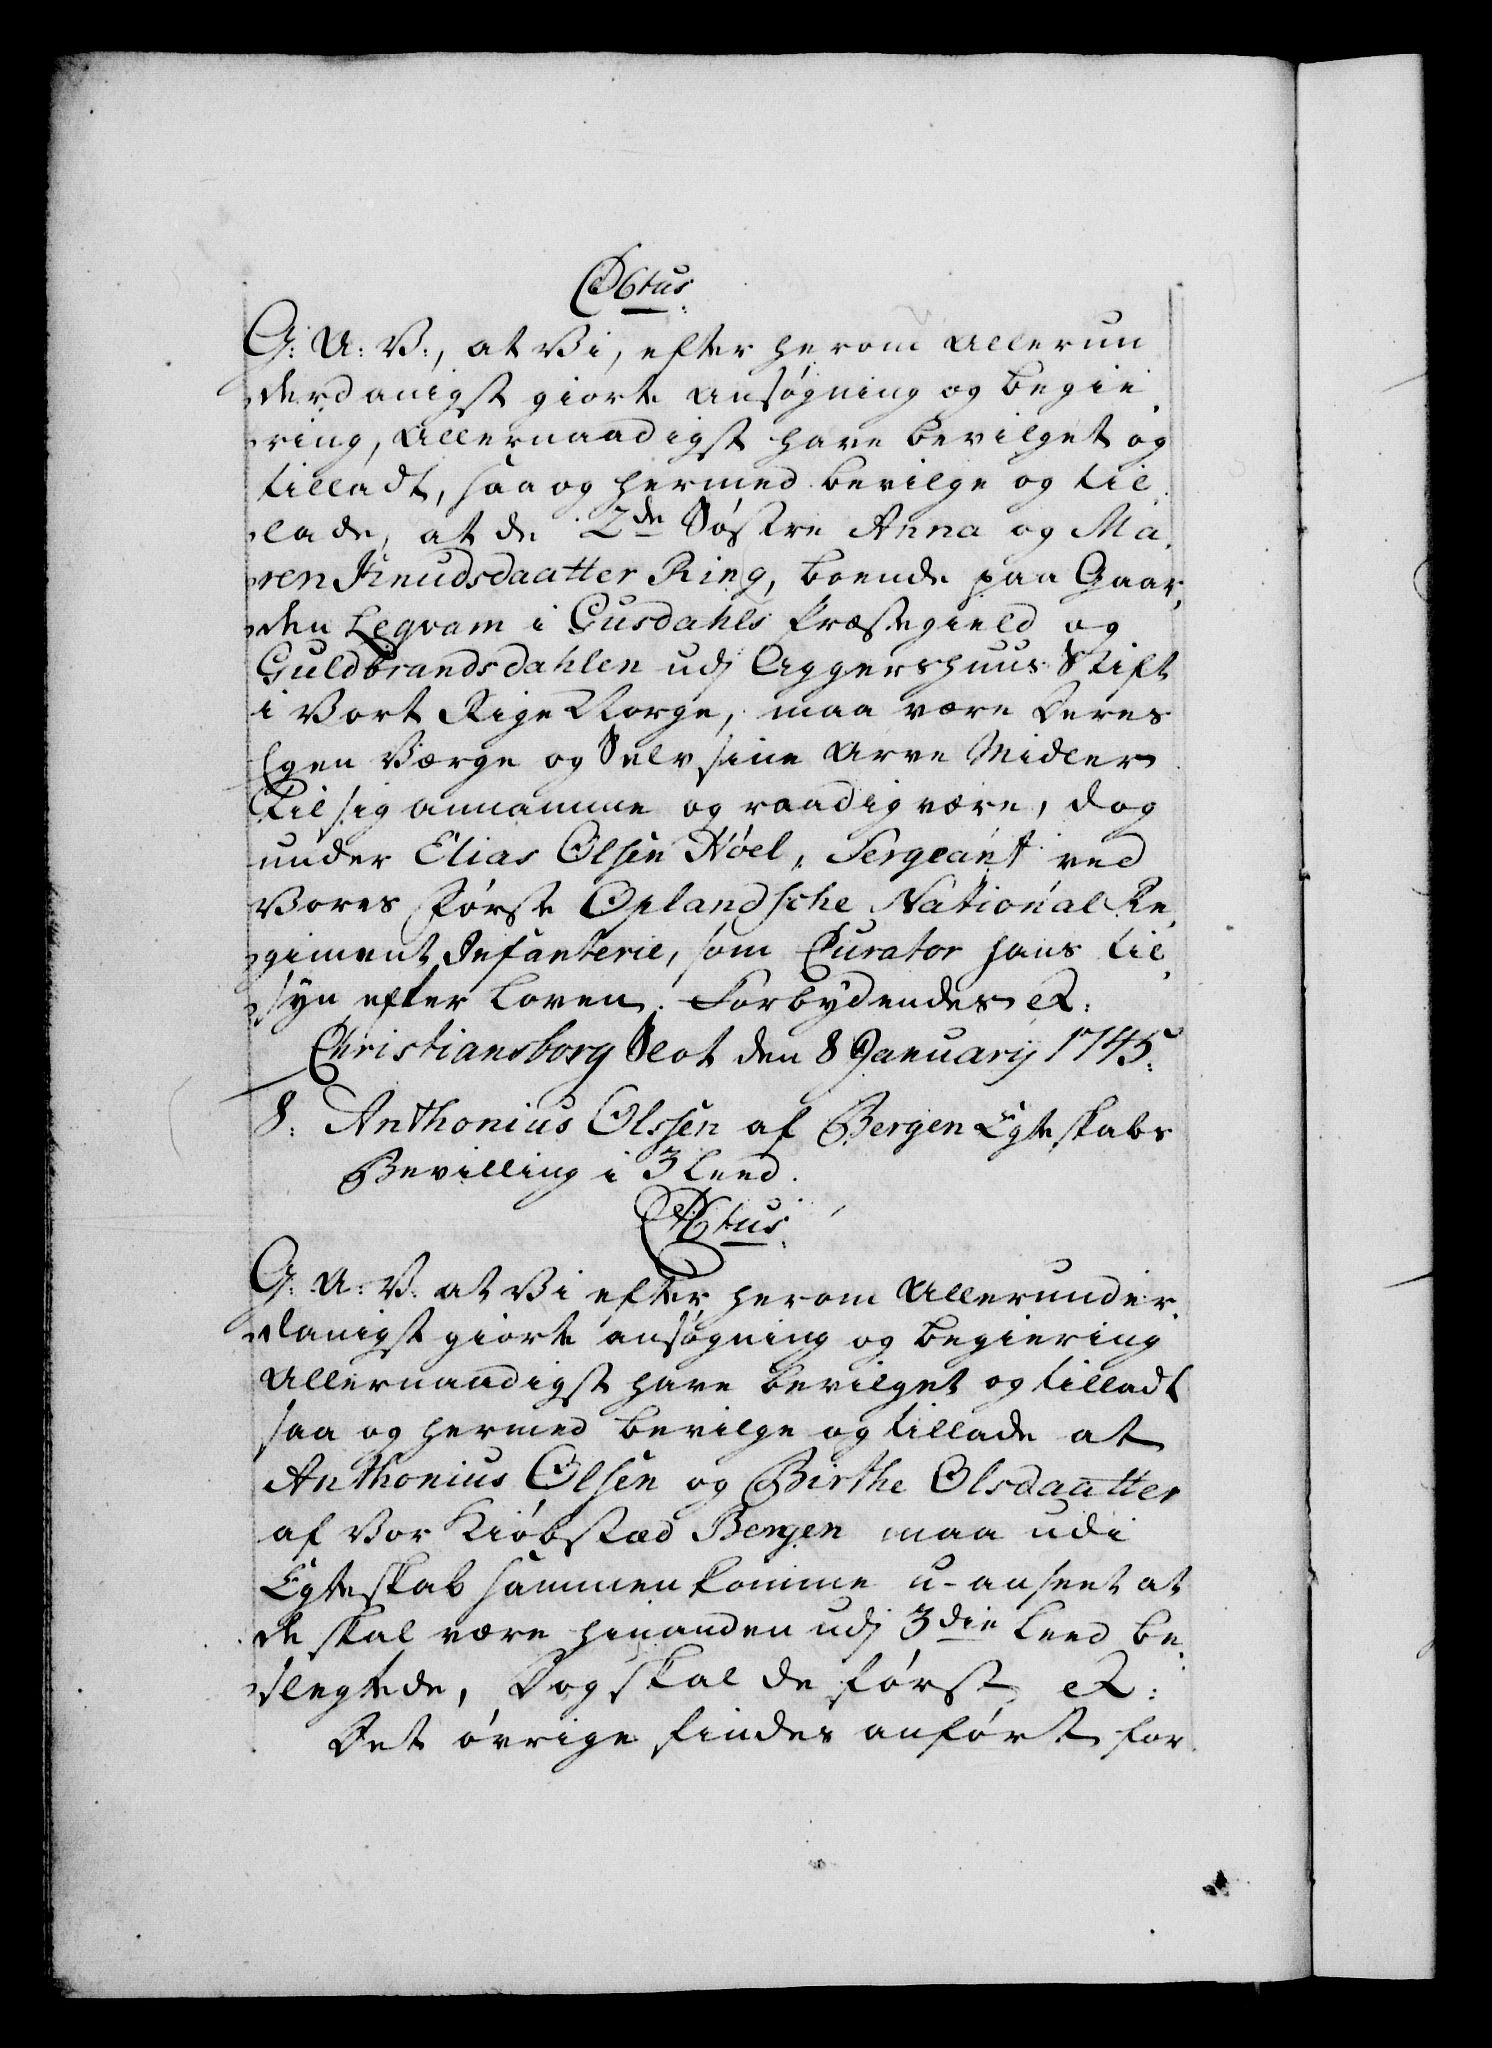 C6tus.
G: A: V:, at Vi, efter herom Allerun
derdanigst giorte Ansøgning og begie
ring, Allernaadigst have bevilget og
tilladt, saa og hermed bevilge og til
lade, at de 2de Søstre Anna og Ma
ren Knudsdaatter Ring, boende paa Gaar
den Legvam i Gusdahls Præstegield og
Guldbrandsdahlen udj Aggershuus Stift
i Vort Rige Norge, maa være Deres
Egen Værge og Selv sine Arve Midler
Til sig annamme og raadig være, dog
under Elias Olsen Høel, Sergeant ved
Vores første Oplandsche National Re
giment Infanterie, som Curator hans til
syn efter Loven. Forbydendes etc:
Christiansborg Slot den 8 Januarij 1745.
8. Anthonius Olssen af Bergen Egteskabs
Bevilling i 3 Leed.
C6tus.
G: A: V: at Vi efter herom Allerunder
danigst giorte ansøgning og begiering
Allernaadigst have bevilget og tilladt
saa og hermed bevilge og tillade at
Anthonius Olsen og Birthe Olsdaatter
af Vor Kiøbstæd Bergen maa udi
Egteskab sammen komme u-anseet at
de skal være hinanden udj 3die Leed be
slegtede, Dog skal de først etc:
Det øvrige findes anført for